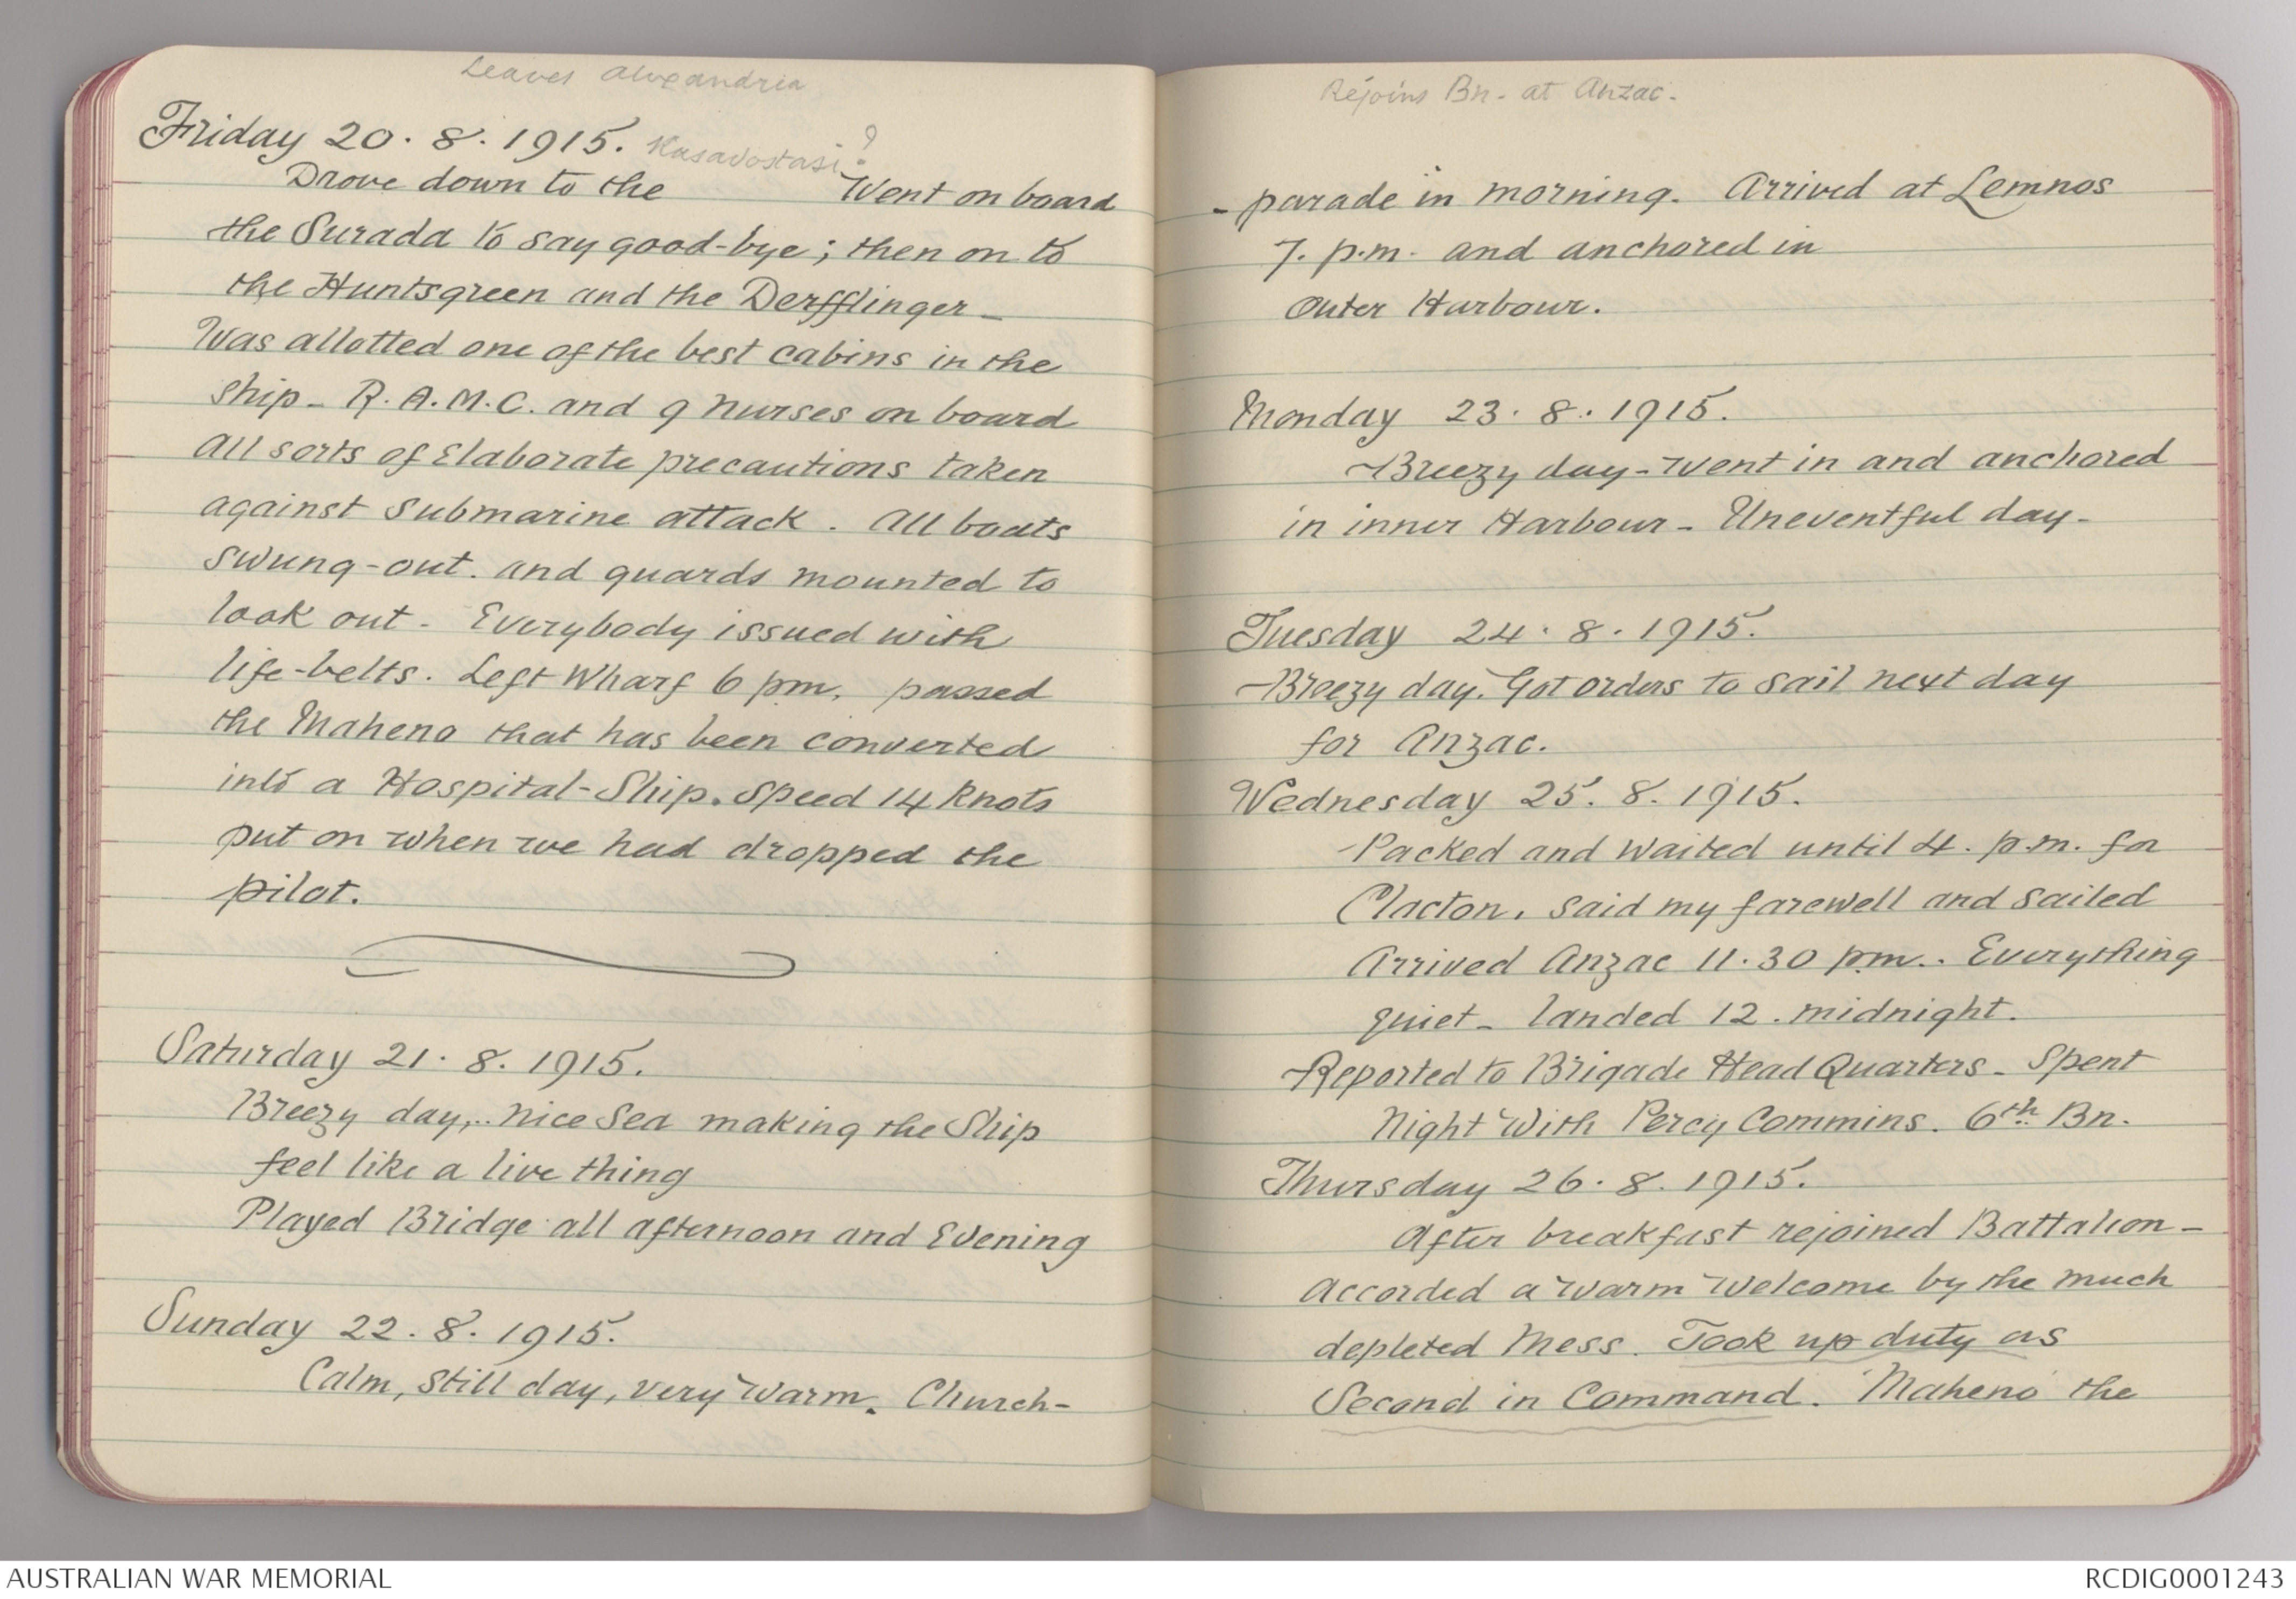 Leaves Alexandria
Friday 20.8.1915. Kasavostasi?
Drove down to the Went on board
the Surada to say good-bye; then on to
the Huntsgreen and the Derfflinger_
Was allotted one of the best cabins in the
ship_ R.A.M.C. and 9 Nurses on board
All sorts of Elaborate precautions taken
against submarine attack. All boats
swung-out. and guards mounted to
look out - Everybody issued with
life-belts. Left Wharf 6 pm, passed
the Maheno that has been converted
into a Hospital-Ship. Speed 14 Knots
put on when we had dropped the
pilot.
Saturday 21.8.1915.
Breezy day,.. nice Sea making the Ship
feel like a live thing
Played Bridge all afternoon and Evening
Sunday 22.8.1915.
Calm, still day, very warm. Church-
Rejoins Bn. at Anzac.
- parade in morning. Arrived at Lemnos
7. p.m. and anchored in
Outer Harbour.
Monday 23.8.1915.
Breezy day - Went in and anchored
in inner Harbour - Uneventful day -
Tuesday 24.8.1915.
Breezy day. Got orders to sail next day
for Anzac.
Wednesday 25.8.1915.
Packed and waited until 4. p.m. for
Clacton, said my farewell and sailed
Arrived Anzac 11.30 pm.. Everything
quiet_ landed 12. midnight.
Reported to Brigade Head Quarters_ Spent
Night With Percy Commins. 6th Bn.
Thursday 26.8.1915.
After breakfast rejoined Battalion -
Accorded a warm welcome by the much
depleted Mess. Took up duty as
Second in Command. Maheno the
AUSTRALIAN WAR MEMORIAL
RCDIG0001243